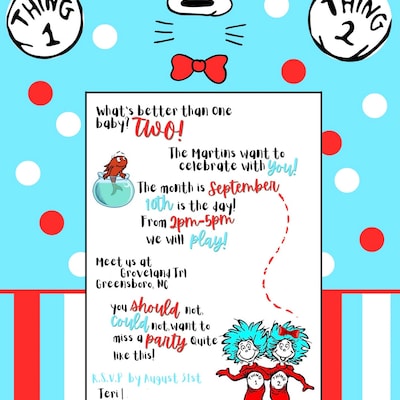 THING
1
THING
2
What's better than One
baby? TWO!
The Martins want to
celebrate with you!
The month is September
10th is the day!
From 2pm-5pm
we will play!
Meet us at
Groveland Trl
Greensboro, NC
you should not,
Could not want to
miss a party Quite
like this!
R.S.V.P by August 31st
Teri |